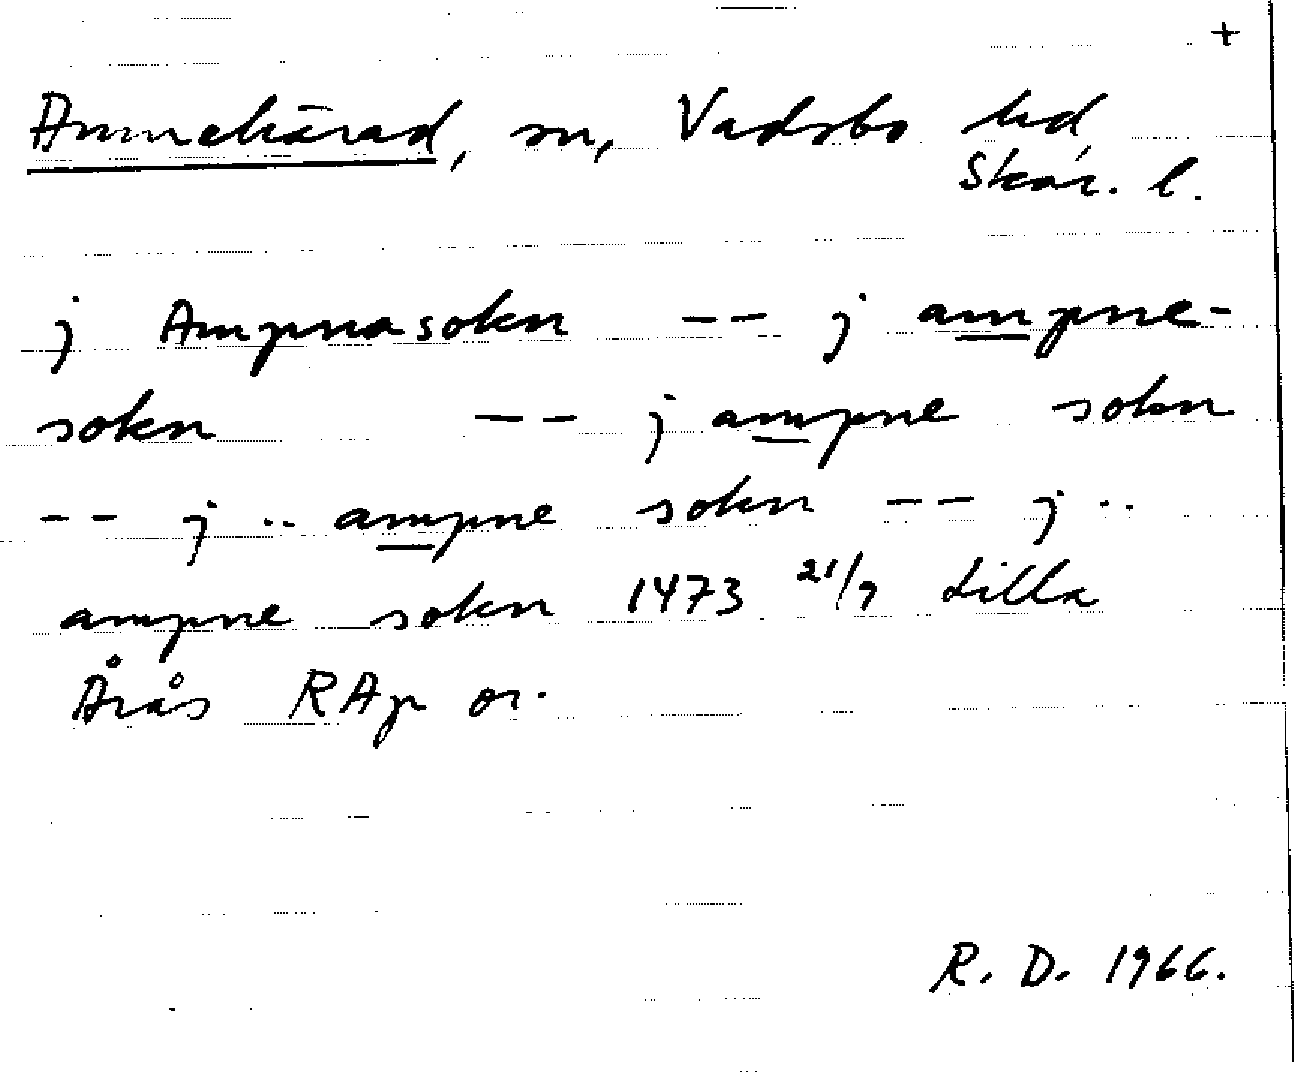 +
Amnehärad, sn, Vadsbo hd,
Skar. l.
j Ampnasokn -- j ampne-
sokn -- j ampne sokn
-- j .. ampne sokn -- j ..
ampne sokn 1473 21/9 Lilla
Årås RAp or.
R. D. 1966.